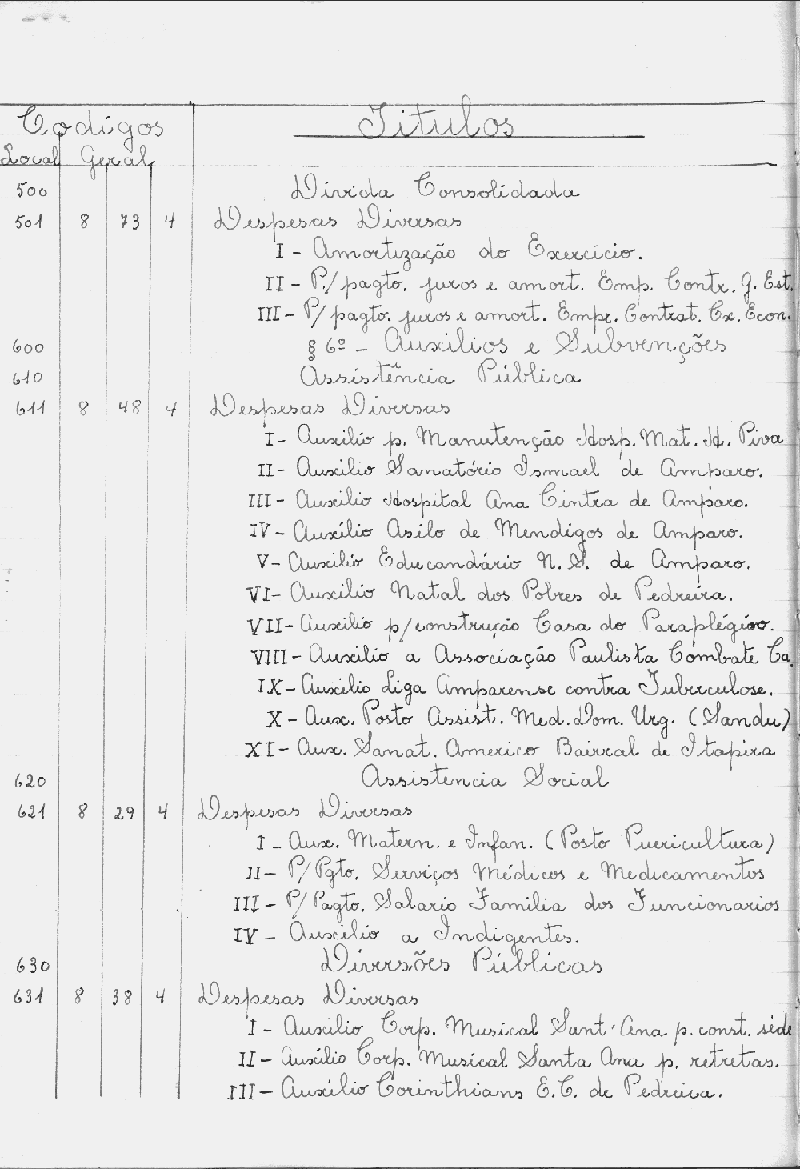 Codigos Titulos
Local Geral
500 Divida Consolidada
501 8 73 4 Despesas Diversas
I - Amortização do Exercício.
II - P./pagto. juros e amort. Emp. Contr. J. Est.
III - P/pagto. juros e amort. Empr. Contrat. Cx. Econ.
600 § 6º - Auxilios e Subvenções
610 Assistência Pública
611 8 48 4 Despesas Diversas
I - Auxilio p. Manutenção Hosp. Mat. H. Piva
II - Auxilio Sanatório Ismael de Amparo.
III - Auxilio Hospital Ana Cintra de Amparo.
IV - Auxílio Asilo de Mendigos de Amparo.
V - Auxilio Educandário N. S. de Amparo.
VI - Auxilio Natal dos Pobres de Pedreira.
VII - Auxilio p/construção Casa do Paraplégico.
VIII - Auxilio a Associação Paulista Combate Ca.
IX - Auxilio Liga Amparense contra Tuberculose.
X - Aux. Posto Assist. Med. Dom. Urg. (Sandu)
XI - Aux. Sanat. Americo Bairral de Itapira
620 Assistencia Social
621 8 29 4 Despesas Diversas
I - Aux. Matern. e Infan. (Posto Puericultura)
II - P/Pgto. Serviços Médicos e Medicamentos
III - P/Pagto. Salario Familia dos Funcionarios
IV - Auxilio a Indigentes.
630 Diversões Públicas
631 8 38 4 Despesas Diversas
I - Auxílio Corp. Musical Sant'Ana p. const. séde
II - Auxílio Corp. Musical Santa Ana p. retretas.
III - Auxílio Corinthians E.C. de Pedreira.